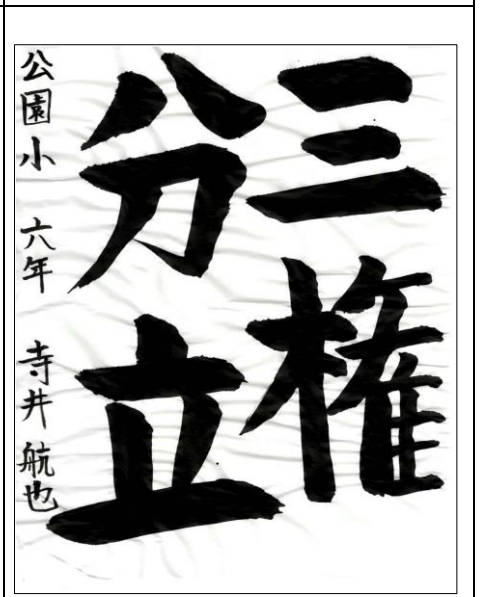 三権
分立
公園小 六年 寺井航也